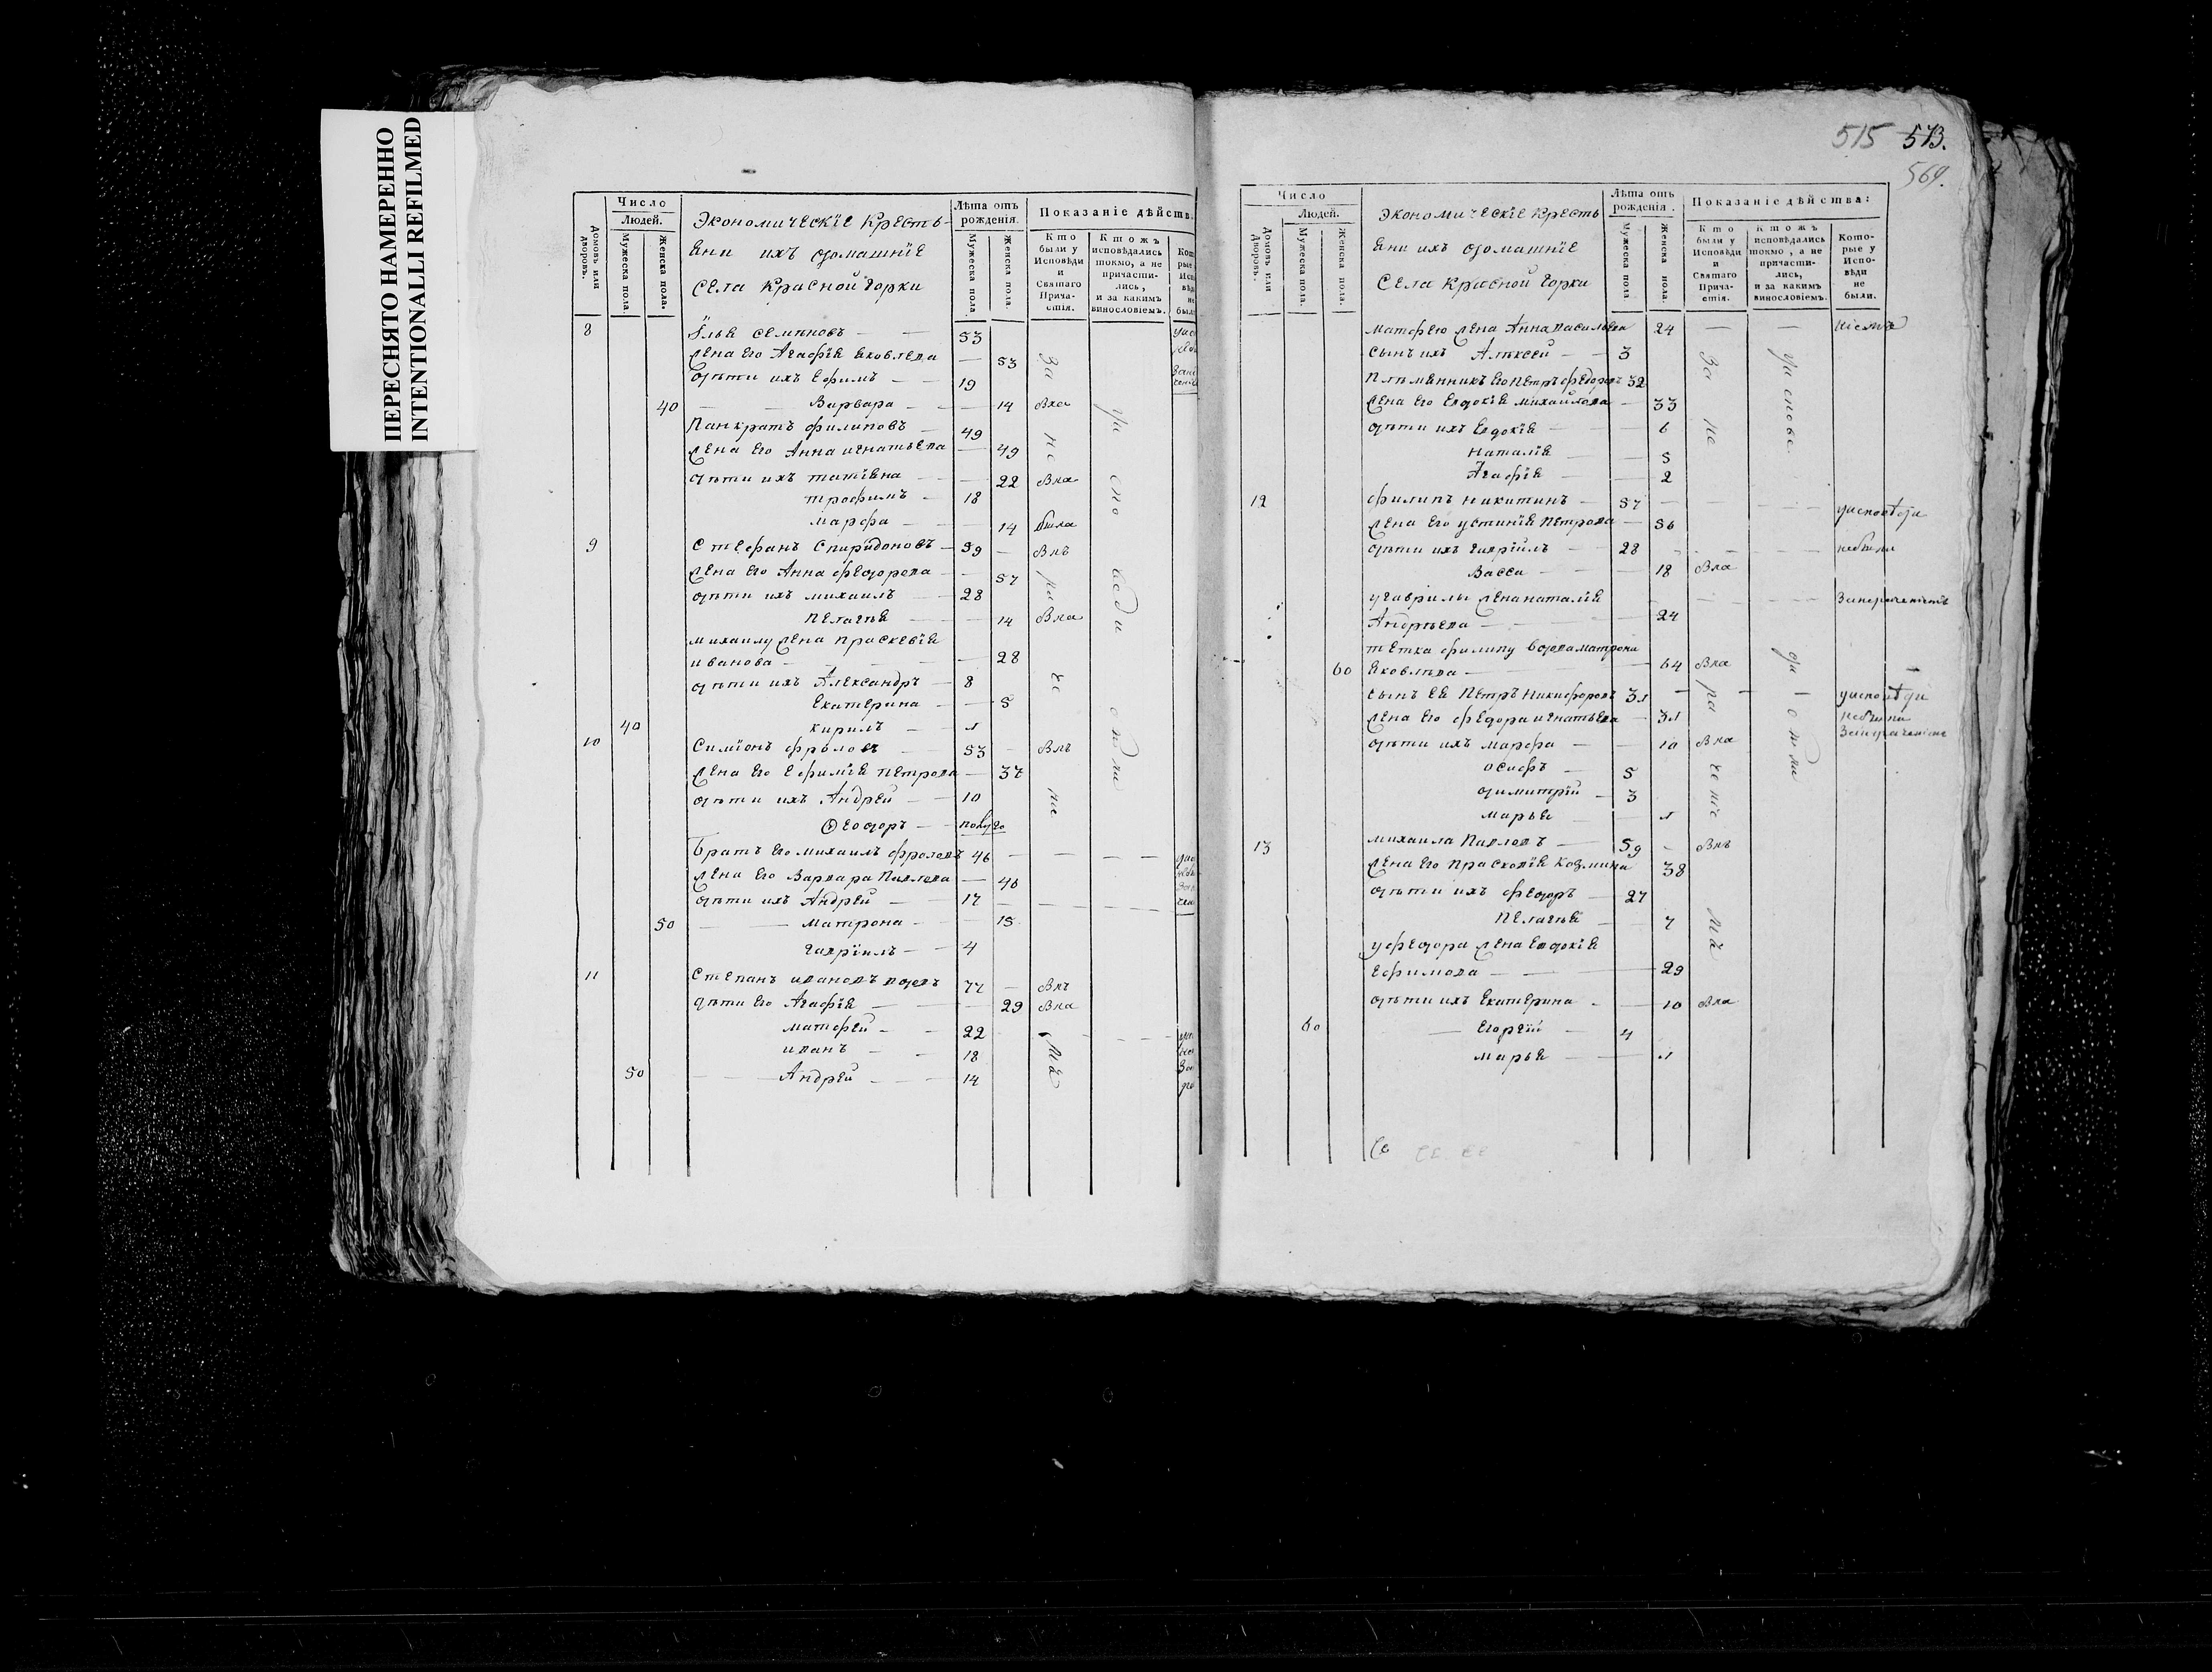 ПЕРЕСНЯТО НАМЕРЕННО
INTENTIONALLI REFILMED
Число
Людей.
Домовъ или дворовъ.
Мужеска пола.
Женска пола.
Экономическїе Кресть-
яни ихъ домашнїе
Села Красной горки
Лѣта отъ рожденія.
Мужеска пола.
Женска пола.
Показаніе дѣйств
Кто были у Исповѣди и Святаго Причастія.
Ктожъ исповѣдались токмо, а не причастились, и за какимъ винословіемъ.
8 Илья Семѣновъ — 53
жена его Агафїя Яковлева — 53
дѣти ихъ Ефимъ — 19
40 Варвара — 14 Бла
Панкратъ Филиповъ — 49
жена его Анна Игнатьева — 49
дѣти ихъ татїяна — 22 Бла
трофимъ — 18
марфа — 14 была
9 Стефанъ Спиридоновъ — 59 — Блъ
жена его Анна Федорова — 57
дѣти ихъ михаилъ — 28
Пелагѣя — 14 Бла
михаилу жена Праскевїя
иванова — 28
дѣти ихъ Александръ — 8
Екатерина — 5
40 кирилъ — л
10 Симїонъ фроловъ — 53 — Блъ
жена его Ефимїя Петрова — 37
дѣти ихъ Андрей — 10
Ѳеодоръ — полуго
Братъ его михаилъ фроловъ 46 —
жена его Варвара Павлова — 46
дѣти ихъ Андрей — 17
50 матрона — 15
гаврїилъ — 4
11 Степанъ ивановъ вдовъ 77 — Блъ
дѣти его Агафїя — 29 Бла
матфей — 22
иванъ — 18
50 Андрей — 14
515 573.
569.
Число
Людей.
Домовъ или Дворовъ.
Мужеска пола.
Женска пола.
Экономическїе Кресть
яни ихъ домашнїе
Села Красной горки
Лѣта отъ рожденія.
Мужеска пола.
Женска пола.
Показаніе дѣйства:
Кто были у Исповѣди и Святаго Причастія.
Ктожъ исповѣдались токмо, а не причастились, и за какимъ винословіемъ.
Которые у Исповѣди не были.
матфею жена Анна васильева 24 — —
сынъ ихъ Алѣксей — 3
Плѣменникъ его Петръ федоровъ 32
жена его Евдокїя михайлова — 33
дѣти ихъ Евдокїя — 6
наталїя — 5
Агафїя — 2
12 филипъ никитинъ — 57 —
жена его устинїя Петрова — 56
дѣти ихъ гаврїилъ — 28 — небыли
Васса — 18 Бла
у гаврилы жена наталїя
Андрѣева — 24
тетка филипу вдова матрона
60 Яковлева — 64 Бла
сынъ ея Петръ никифоровъ 3л —
жена его федора игнатьева — 3л
дѣти ихъ марфа — 10 Бла
осифъ — 5
димитрїй — 3
марья — л
13 михаила Павловъ — 59 — Блъ
жена его Прасковїя Козмина 38
дѣти ихъ федоръ — 27
Пелагѣя — 7
у федора жена Евдокїя
Ефимова — 29
дѣти ихъ Екатерина — 10 Бла
60 Егоргїй — 4
марья — л